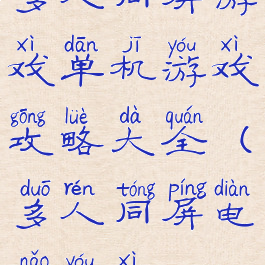 多人同屏游
xì dān jī yóu xì
戏单机游戏
gōng lüè dà quán
攻略大全（
duō rén tóng píng diàn
多人同屏电
nǎo yóu xì